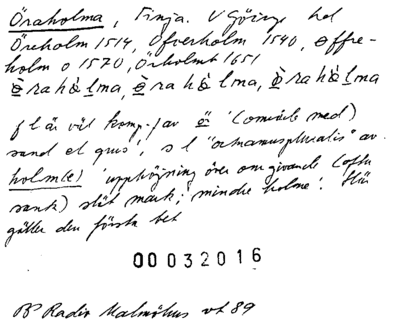 Öraholma, Finja. V Göinge hd
Öreholm 1514, Öfverholm 1540, Offre-
holm o 1570, Örholmt 1651
rah lma, rah lma, rah lma
f l är väl komp. av ör '(område med)
sand el grus', s l "ortnamnspluralis" av
holm(e) 'upphöjning över omgivande (ofta
sank) slät mark; mindre holme'. Här
gäller den första bet
00032016
Radio Malmöhus vt 89